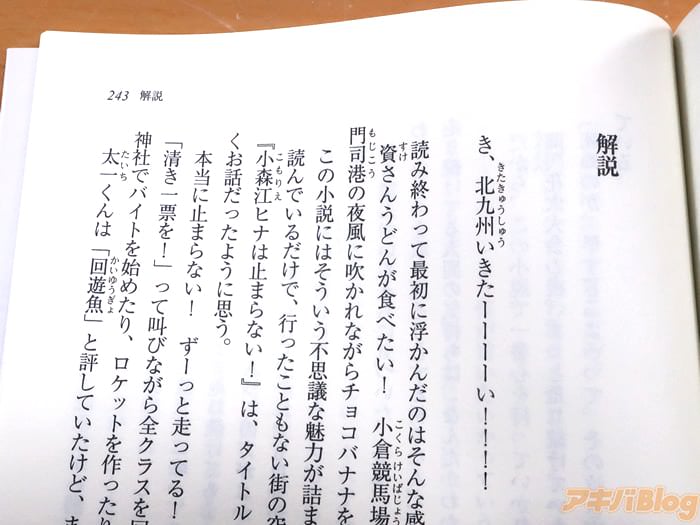 243 解説
解説
き、北九州いきたーーーーい!!!!
きたきゅうしゅう
読み終わって最初に浮かんだのはそんな感
資さんうどんが食べたい! 小倉競馬場
すけ
こくらけいばじょう
門司港の夜風に吹かれながらチョコバナナを
もじこう
この小説にはそういう不思議な魅力が詰ま
読んでいるだけで、行ったこともない街の空
『小森江ヒナは止まらない!』は、タイトル
こもりえ
くお話だったように思う。
本当に止まらない! ずーっと走ってる!
「清き一票を!」って叫びながら全クラスを回
神社でバイトを始めたり、ロケットを作ったり
太一くんは「回遊魚」と評していたけど、
たいち
かいゆうぎょ
アキバBlog